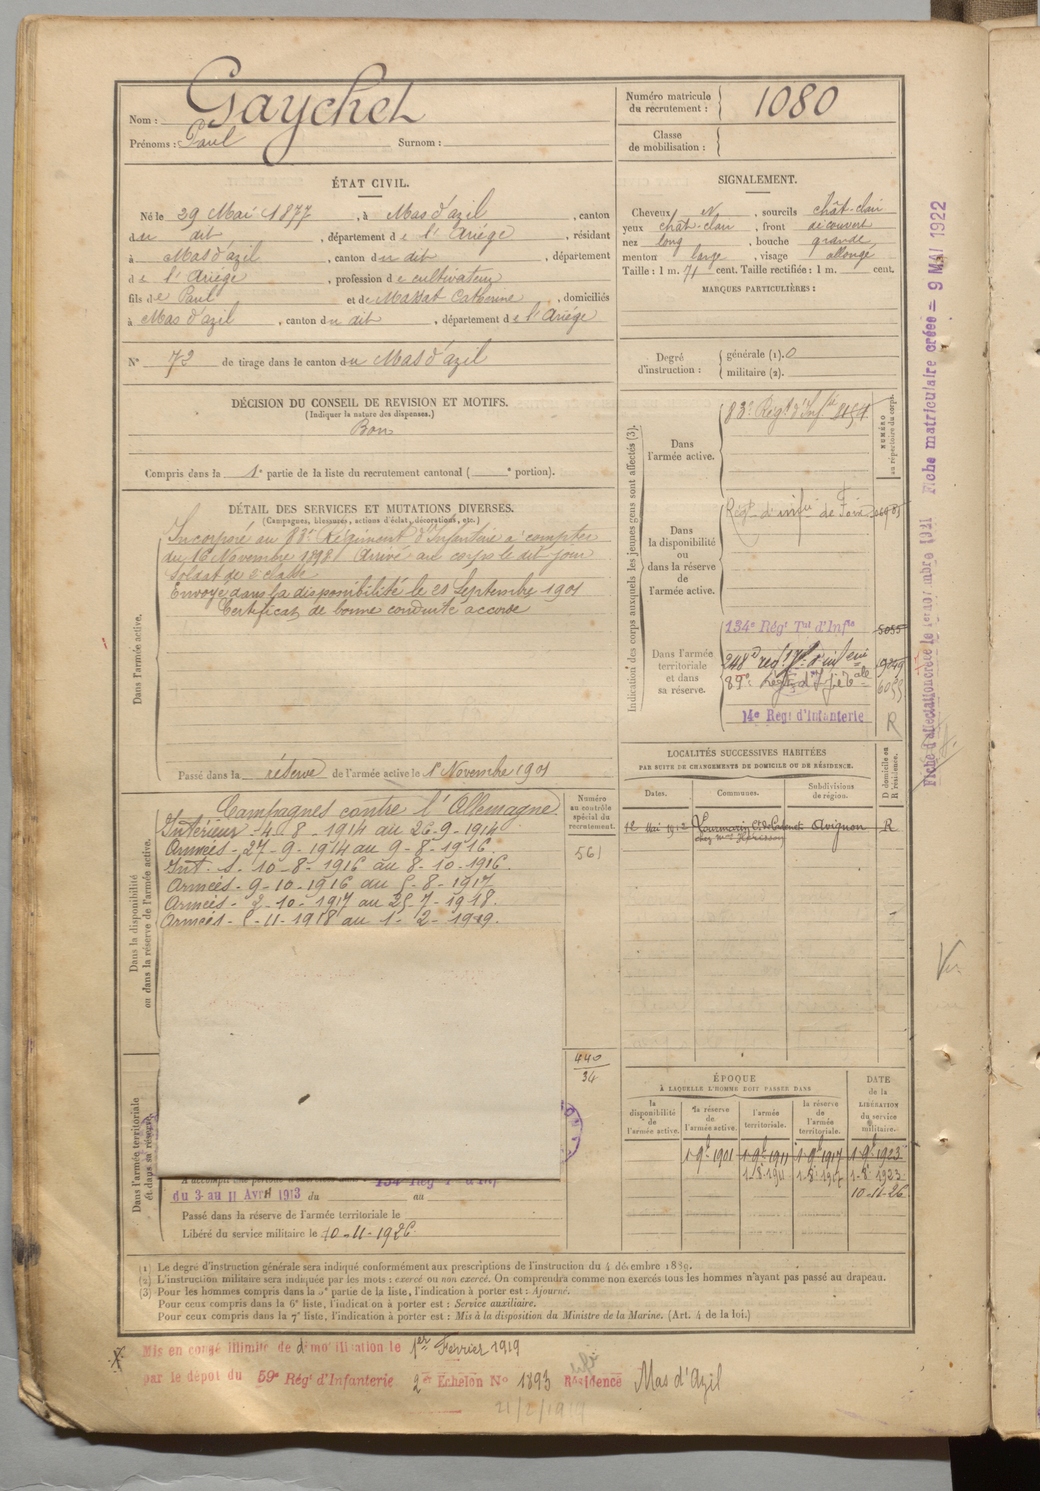 Nom : Gaychet
Prénoms : Paul Surnom :
Numéro matricule du recrutement : 1080
Classe de mobilisation :
ÉTAT CIVIL.
Né le 29 Mai 1877, à Mas d'azil, canton
du dit, département de l'Ariége, résidant
à Mas d'azil, canton du dit, département
de l'Ariége, profession de cultivateur
fils de Paul et de Massat Catherine, domiciliés
à Mas d'azil, canton du dit, département de l'Ariége
N° 72 de tirage dans le canton du Mas d'azil
SIGNALEMENT.
Cheveux N, sourcils chât-clair
yeux chât-clair, front découvert
nez long, bouche grande,
menton large, visage allongé
Taille : 1 m. 71 cent. Taille rectifiée : 1 m. cent.
MARQUES PARTICULIÈRES :
Degré d'instruction :
générale (1). 0
militaire (2).
DÉCISION DU CONSEIL DE REVISION ET MOTIFS.
(Indiquer la nature des dispenses.)
Bon
Compris dans la 1e partie de la liste du recrutement cantonal ( e portion).
DÉTAIL DES SERVICES ET MUTATIONS DIVERSES.
(Campagnes, blessures, actions d'éclat, décorations, etc.)
Dans l'armée active.
Incorporé au 83e Régiment d'Infanterie à compter
du 16 Novembre 1898 Arrivé au corps le dit jour
Soldat de 2e classe
Envoyé dans la disponibilité le 21 Septembre 1901
Certificat de bonne conduite accordé
Passé dans la réserve de l'armée active le 1r Novembre 1901
Indication des corps auxquels les jeunes gens sont affectés (3).
NUMÉRO au répertoire du corps.
Dans l'armée active.
83e Régt d'Infie
Dans la disponibilité ou dans la réserve de l'armée active.
Régt d'infie de Foix
Dans l'armée territoriale et dans sa réserve.
134e Régt Tal d'Infie 5055
6055
14e Regt d'Infanterie R
LOCALITÉS SUCCESSIVES HABITÉES
PAR SUITE DE CHANGEMENTS DE DOMICILE OU DE RÉSIDENCE.
D domicile ou R résidence.
Dates. Communes. Subdivisions de région.
12 Mai 1912 Avignon R
Dans la disponibilité ou dans la réserve de l'armée active.
Numéro au contrôle spécial du recrutement.
561
Campagnes contre l'Allemagne
Intérieur - 4-8-1914 au 26-9-1914
Armées - 27-9-1914 au 9-8-1916
Int. S. 10-8-1916 au 8-10-1916.
Armées - 9-10-1916 au 5-8-1917
Armées - 2-10-1917 au 25-7-1918.
Armées - 5-11-1918 au 1-2-1919.
440
34
ÉPOQUE
À LAQUELLE L'HOMME DOIT PASSER DANS
la disponibilité de l'armée active. la réserve de l'armée active. l'armée territoriale. la réserve de l'armée territoriale.
DATE de la LIBÉRATION du service militaire.
1-9bre 1901 1-9bre 1911 1-9bre 1917 1-9bre 1923
1-8r 1923
10-11-26
Dans l'armée territoriale et dans sa réserve.
du 3 au 11 Avril 1913 du au
Passé dans la réserve de l'armée territoriale le
Libéré du service militaire le 10-11-1926
(1) Le degré d'instruction générale sera indiqué conformément aux prescriptions de l'instruction du 4 décembre 1889.
(2) L'instruction militaire sera indiquée par les mots : exercé ou non exercé. On comprendra comme non exercés tous les hommes n'ayant pas passé au drapeau.
(3) Pour les hommes compris dans la 5e partie de la liste, l'indication à porter est : Ajourné.
Pour ceux compris dans la 6e liste, l'indication à porter est : Service auxiliaire.
Pour ceux compris dans la 7e liste, l'indication à porter est : Mis à la disposition du Ministre de la Marine. (Art. 4 de la loi.)
Mis en congé illimité de démobilisation le 1er Février 1919
par le dépôt du 59e Régt d'Infanterie 2e Echelon N° 1893 Résidence Mas d'Azil
21/2/1919
Fiche matriculaire créée = 9 MAI 1922